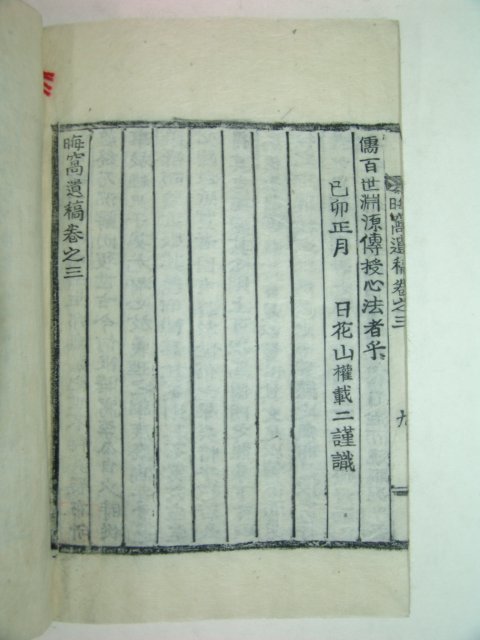 晦窩遺稿卷之三
儒百世淵源傳授心法者乎
己卯正月　　日花山權載二謹識
晦窩遺稿卷之三